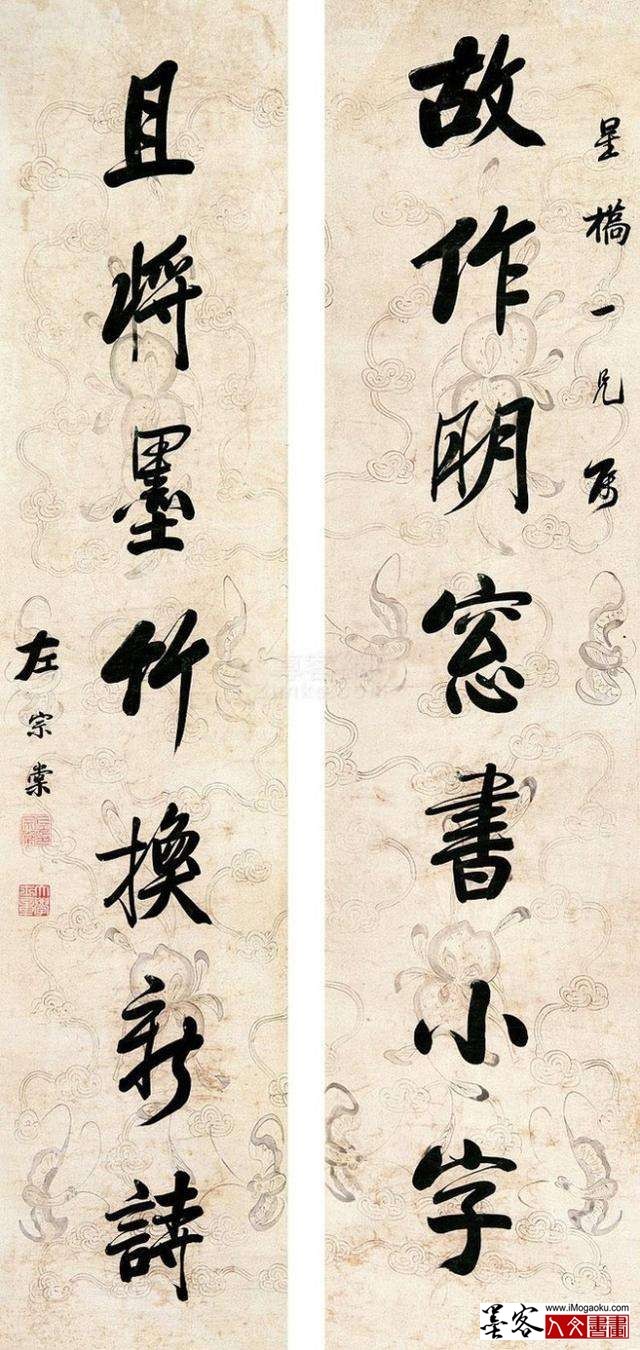 星橋一兄属
故作明窓書小字
且將墨竹換新詩
左宗棠
墨客
www.iMogaoku.com
人文書畫